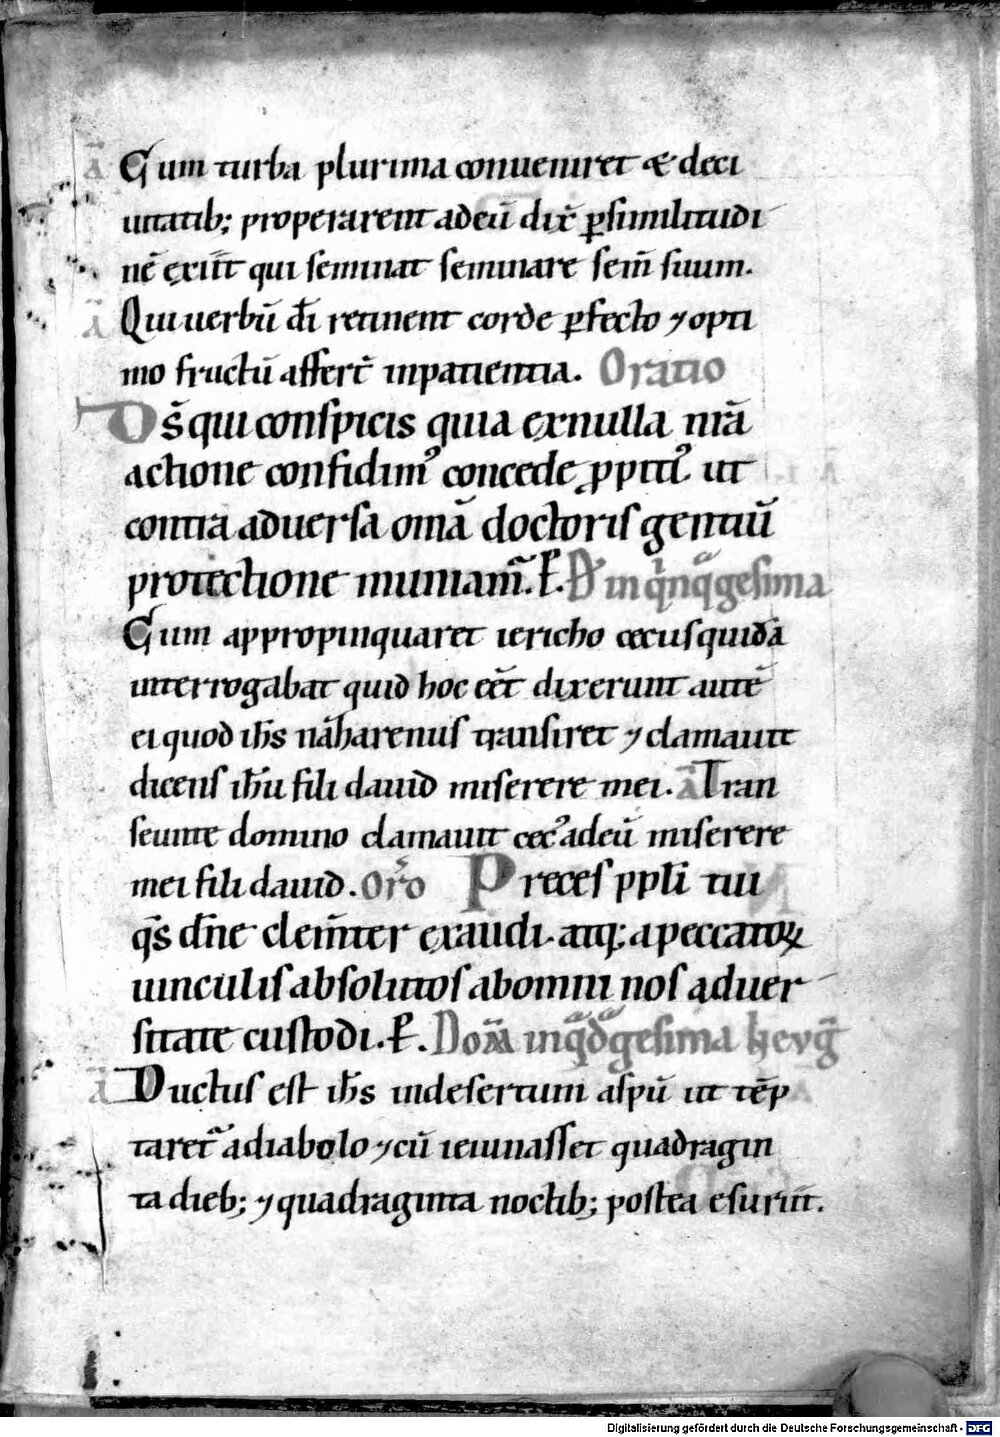 A̅ Cum turba plurima conueniret & deci
uitatib; properarent adeū dix̄ ꝑsimilitudi
nē exiit qui seminat seminare sem̄ suum.
A̅ Qui uerbū dī retinent corde ꝑfecto ⁊ opti
mo fructū affert̄ inpatientia. Oratio
Ds̄ qui conspicis quia exnulla nrā
actione confidim᾿ concede ꝓpiti᾿ ut
contra aduersa om̄a doctoris gentiū
protectione muniam̄. P. D᾿ in qⁱnqᵃgesima
Cum appropinquaret iericho cecus quidā
interrogabat quid hoc eēt dixerunt autē
ei quod ihs̄ naharenus transiret ⁊ clamauit
dicens ihū fili dauid miserere mei. A̅ Tran
seunte domino clamauit cec᾿ adeū miserere
mei fili dauid. Or̄o Preces ppłi tui
qs̄ dn̄e clem̄ter exaudi. atq; apeccatoꝝ
uinculis absolutos abomni nos aduer
sitate custodi. P. Dom̄ inqᵃdᵃgesima Ī euḡ
A̅ Ductus est ihs̄ indesertum aspū ut tēp
taret᾿ adiabolo ⁊ cū ieiunasset quadragin
ta dieb; ⁊ quadraginta noctib; postea esuriit.
Digitalisierung gefördert durch die Deutsche Forschungsgemeinschaft - DFG